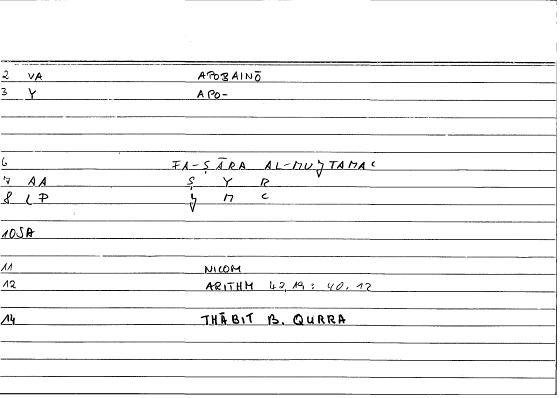 2 VA APOBAINŌ
3 Y APO-
6 FA-ṢĀRA AL-MUǦTAMAʿ
7 AA Ṣ Y R
8 LP Ǧ M ʿ
10 SA
11 NICOM
12 ARITHM 42,19 : 40,12
14 THĀBIT B. QURRA